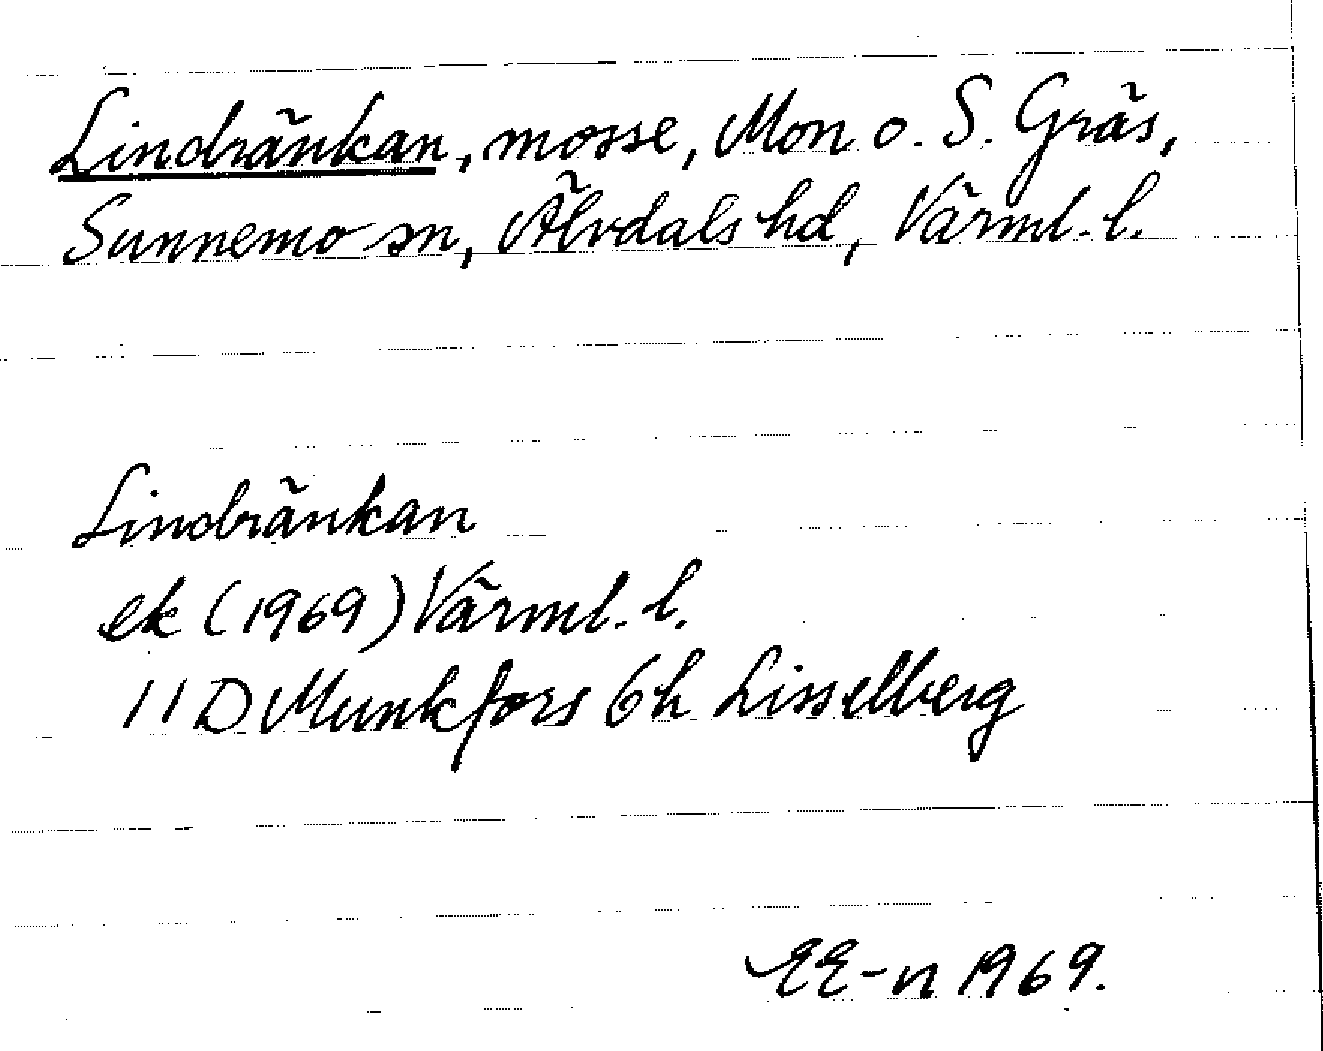 Lindränkan, mosse, Mon o. S. Gräs,
Sunnemo sn, Älvdals hd, Värml. l.
Lindränkan
ek (1969) Värml. l.
11 D Munkfors 6h Lisselberg
EE-n 1969.